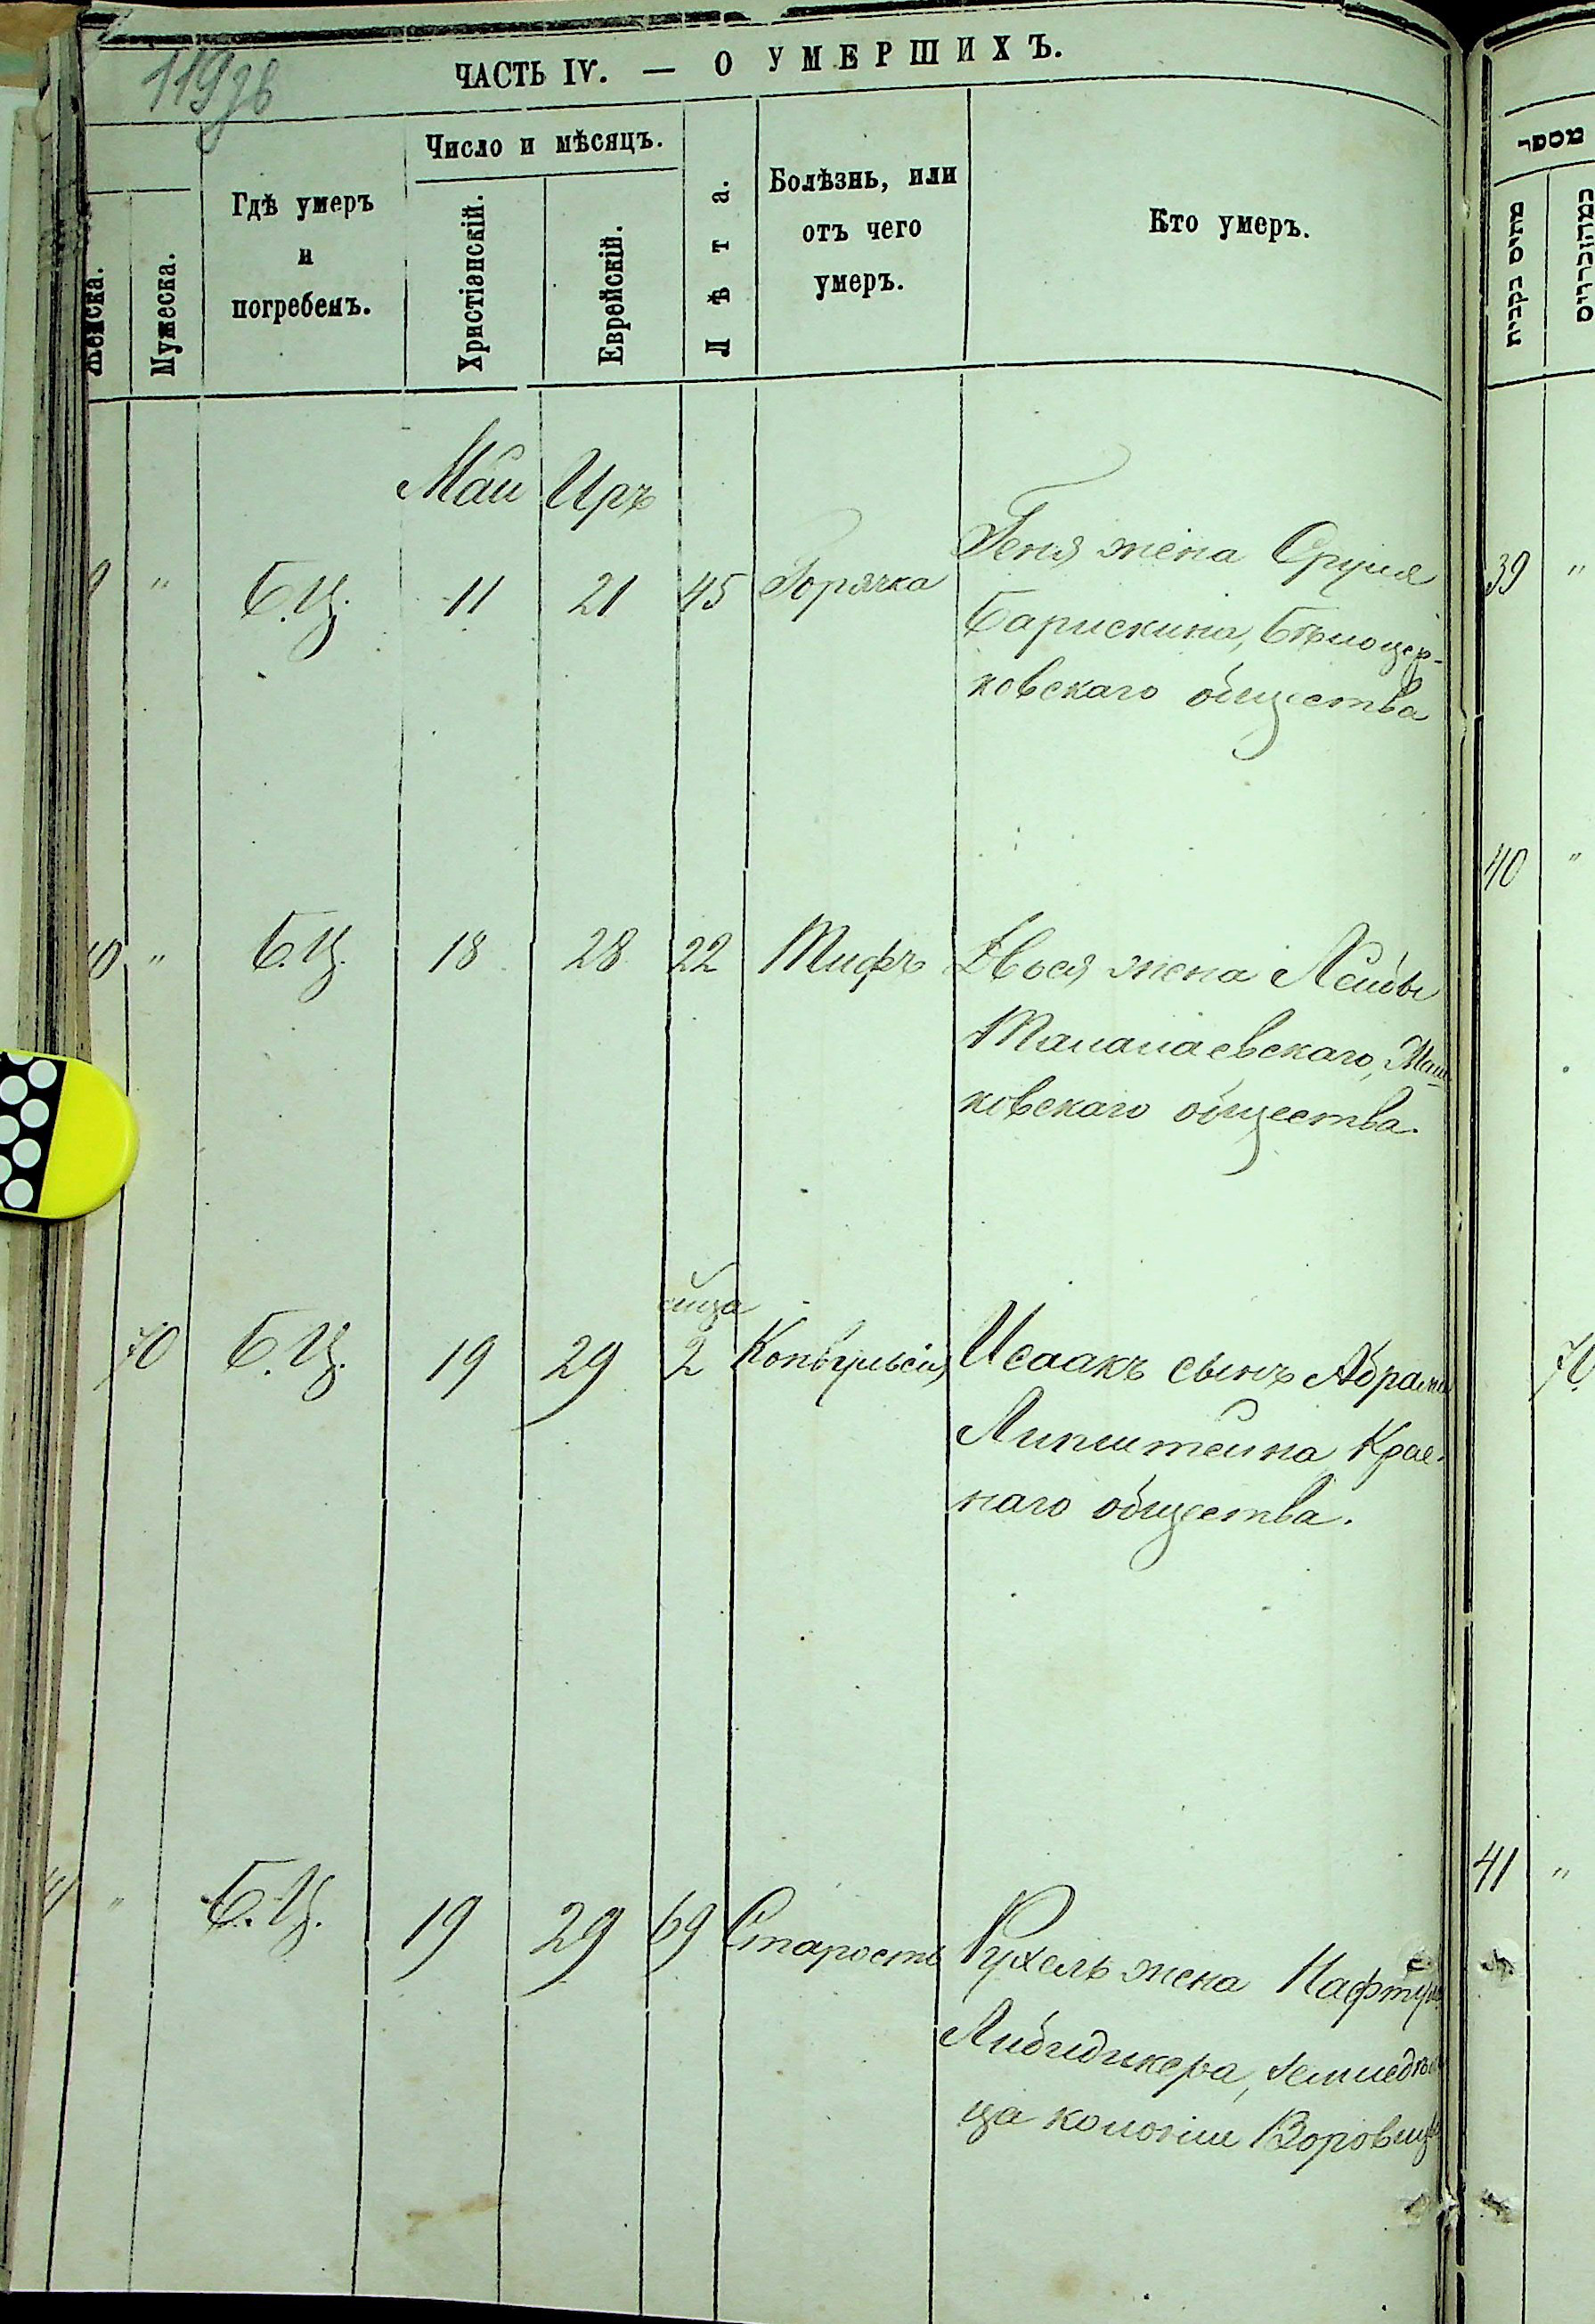 119зв
ЧАСТЬ IV. — О УМЕРШИХЪ.
Женска.
Мужеска.
Гдѣ умеръ
и
погребенъ.
Число и мѣсяцъ.
Христіанскій.
Еврейскій.
Лѣта.
Болѣзнь, или
отъ чего
умеръ.
Кто умеръ.
Май Иръ
" Б.Ц. 11 21 45 Горячка Геня жена Сруля
Барискина, Бѣлоцер-
ковскаго общества
" Б.Ц. 18 28 22 Тифъ Двося жена Лейбы
Талалаевскаго,
ковскаго общества.
70 Б.Ц. 19 29 2 Конвульсія Исаакъ сынъ Абрама
Липштейна Крас-
наго общества.
" Б.Ц. 19 29 69 Старость Рухель жена Нафтул
Либидикера, земледѣл
ца колоніи
מספר
39 "
40 "
70
41 "